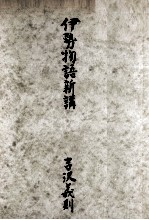 伊勢物語新講
吉沢義則